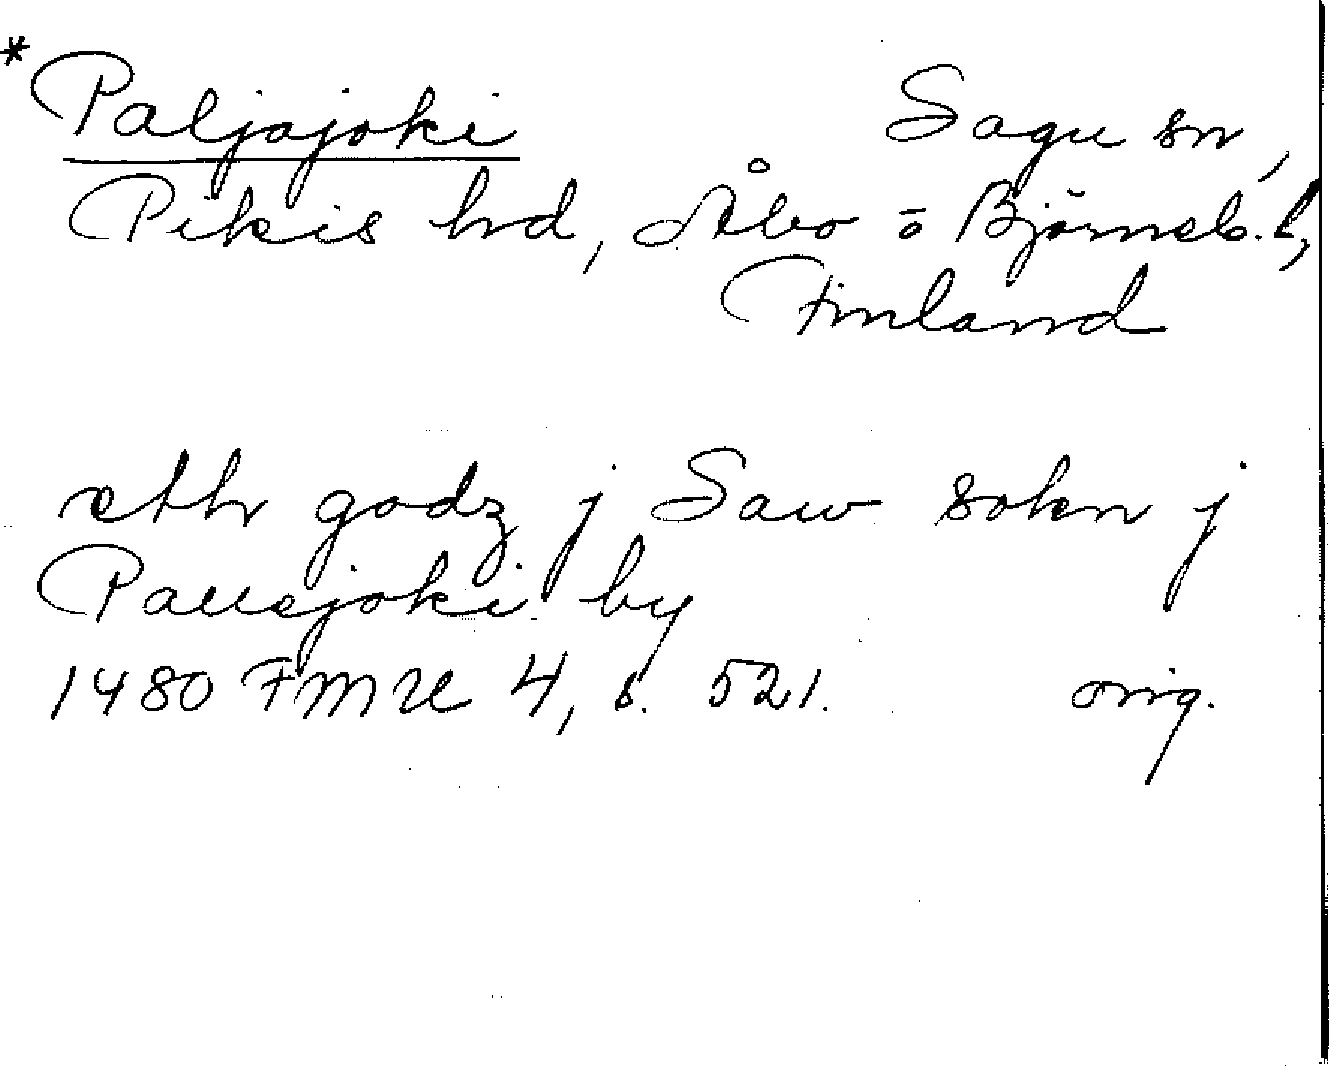 * Paljajoki Sagu sn,
Pikis hd, Åbo o Björneb. l,
Finland
eth godz j Saw sokn j
Pallejoki by
1480 FMU 4, s. 521. orig.